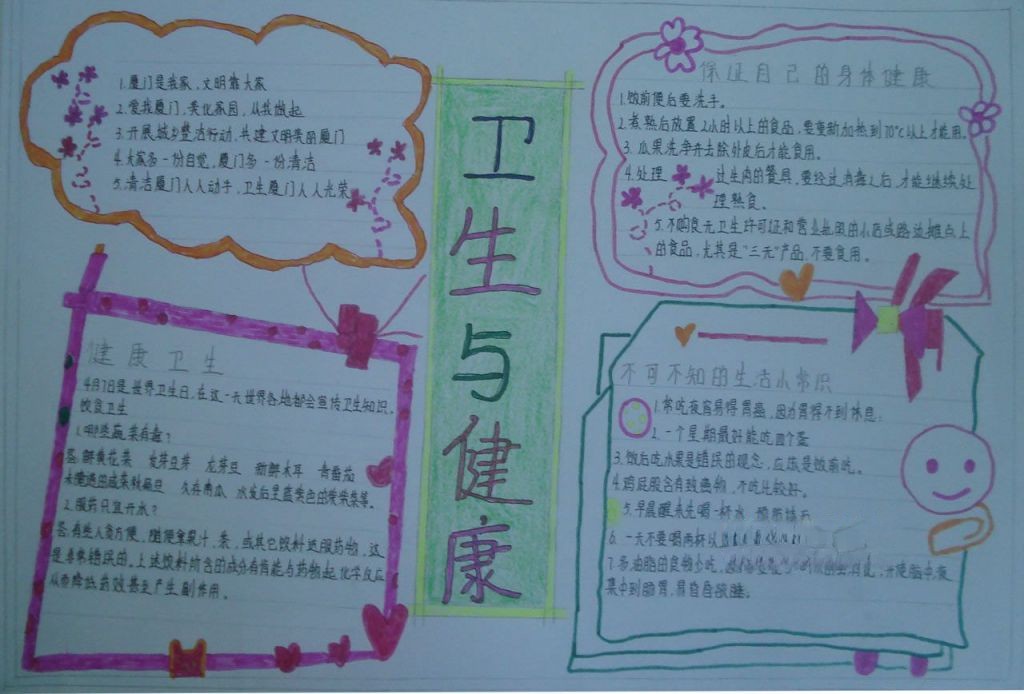 1.厦门是我家，文明靠大家
2.爱我厦门，美化家园，从我做起
3.开展城乡整洁行动，共建文明美丽厦门
4.大家多一份自觉，厦门多一份清洁
5.清洁厦门人人动手，卫生厦门人人光荣
卫生与健康
保证自己的身体健康
1.饭前便后要洗手。
2.煮熟后放置2小时以上的食品，要重新加热到70℃以上才能用。
3.瓜果洗净并去除外皮后才能食用。
4.处理 过生肉的餐具，要经过消毒之后，才能继续处
理熟食。
5.不购食无卫生许可证和营业执照的小店或路边摊点上
的食品，尤其是“三无”产品，不要食用。
健康卫生
4月7日是世界卫生日，在这一天世界各地都会宣传卫生知识，
饮食卫生
1.哪些蔬菜有毒？
答：鲜黄花菜 发芽豆芽 龙芽豆 新鲜木耳 青番茄
未腌透的咸菜 久存南瓜 水发后呈蓝紫色的紫菜等。
2.服药只宜开水？
答：有些人贪方便，随便拿果汁、茶，或其它饮料送服药物，这
是非常错误的，上述饮料所含的成分有肯能与药物起化学反应
从而降低药效甚至产生副作用。
不可不知的生活小常识
1.常吃夜宵易得胃癌，因为胃得不到休息。
2.一个星期最好能吃四个蛋
3.饭后吃水果是错误的观念，应该是饭前吃。
4.鸡屁股含有致癌物，不吃比较好。
5.早晨醒来先喝一杯水
6.一天不要喝两杯以
7.多油脂的食物少吃， 并使脑中
集中到肠胃，易昏昏欲睡。